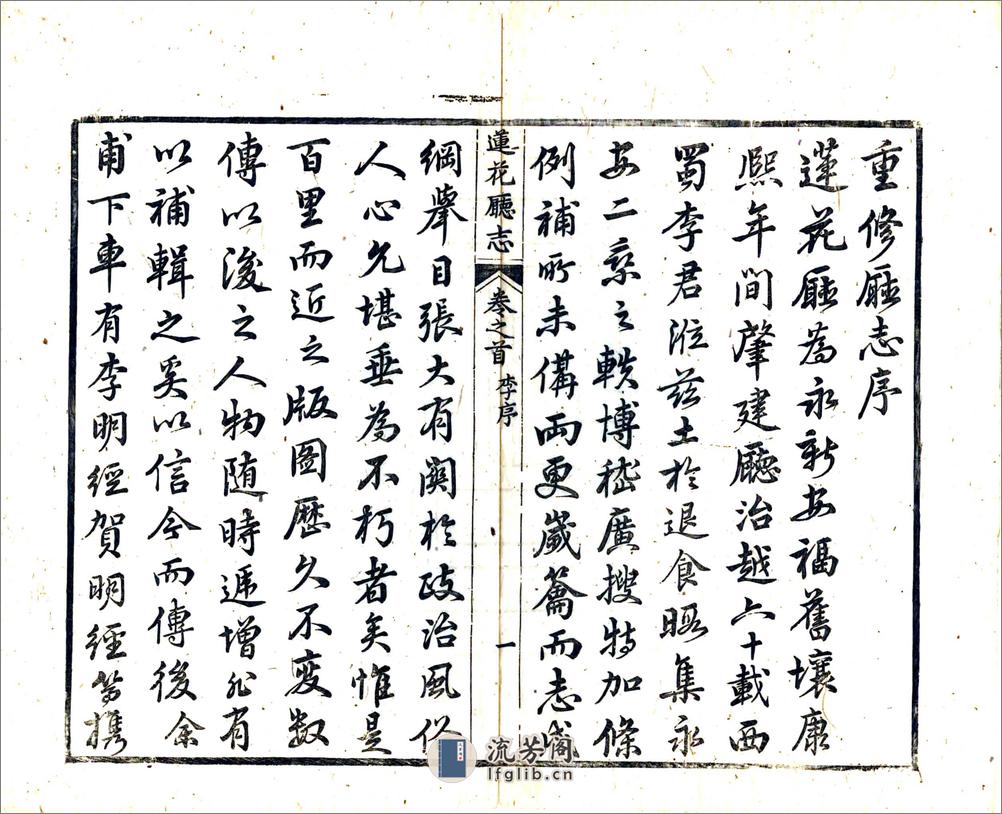 重修廳志序
蓮花廳為永新安福舊壤康
熙年間肇建廳治越六十載西
蜀李君涖茲土於退食暇集永
安二棄之軼博嵇廣搜特加條
例補所未備兩更歲籥而志成
蓮花廳志
卷之首
李序
一
綱舉目張大有關於政治風俗
人心允堪垂為不朽者矣惟是
百里而近之版圖歷久不變數
傳以後之人物随時遞增非有
以補輯之奚以信今而傳後余
甫下車有李明經賀明經等携
流芳阁
lfglib.cn